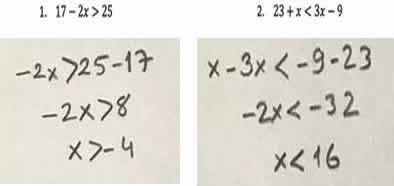 1. 17 - 2x > 25
-2x > 25 - 17
-2x > 8
x > -4
2. 23 + x < 3x - 9
x - 3x < -9 - 23
-2x < -32
x < 16